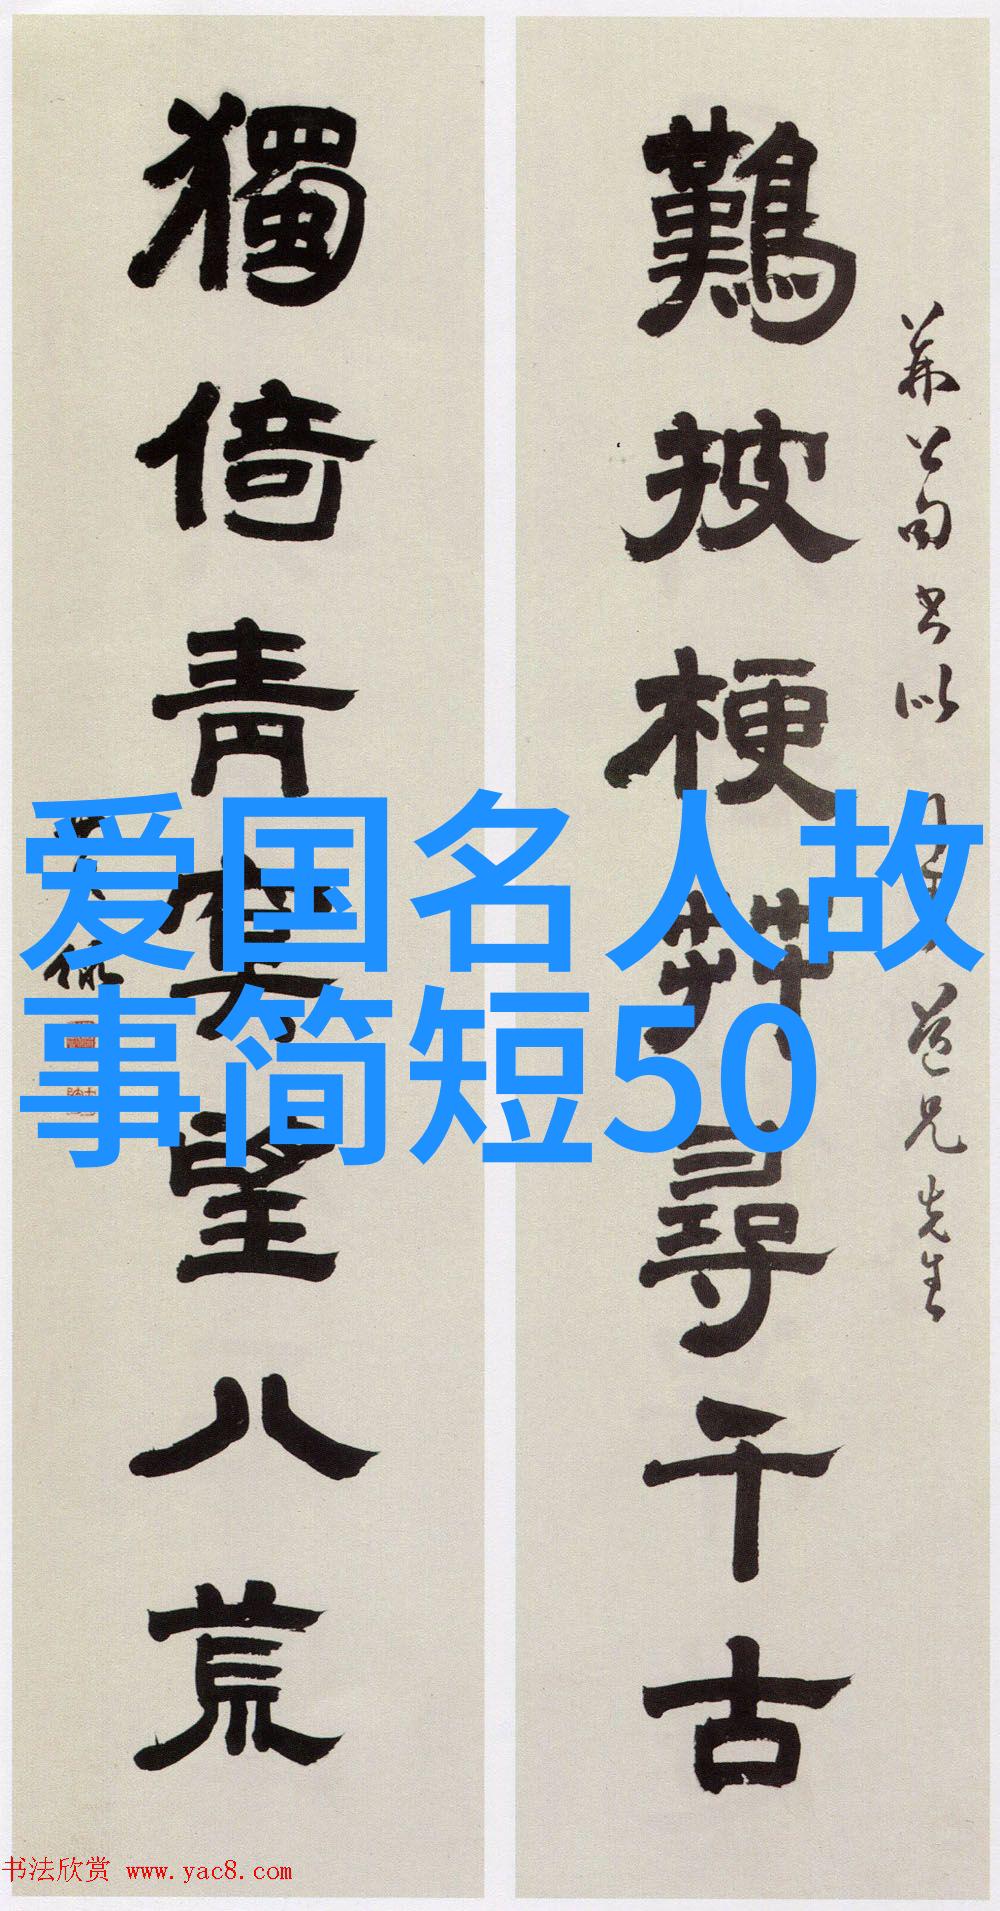 爱国名人故
事简短50
難披梗莽尋千古
獨倚青寞望八荒
兄先生
书法欣赏 www.yac8.com